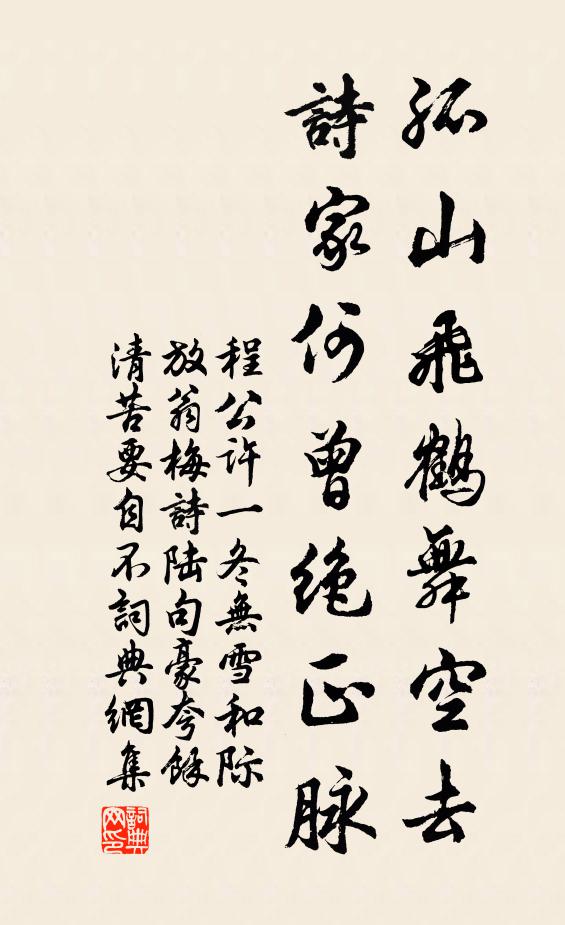 孤山飛鶴舞空去
詩家何曾絶正脉
程公許一冬無雪和际
放翁梅詩陸句豪夸餘
清苦要自不詞典網集
詞典网印